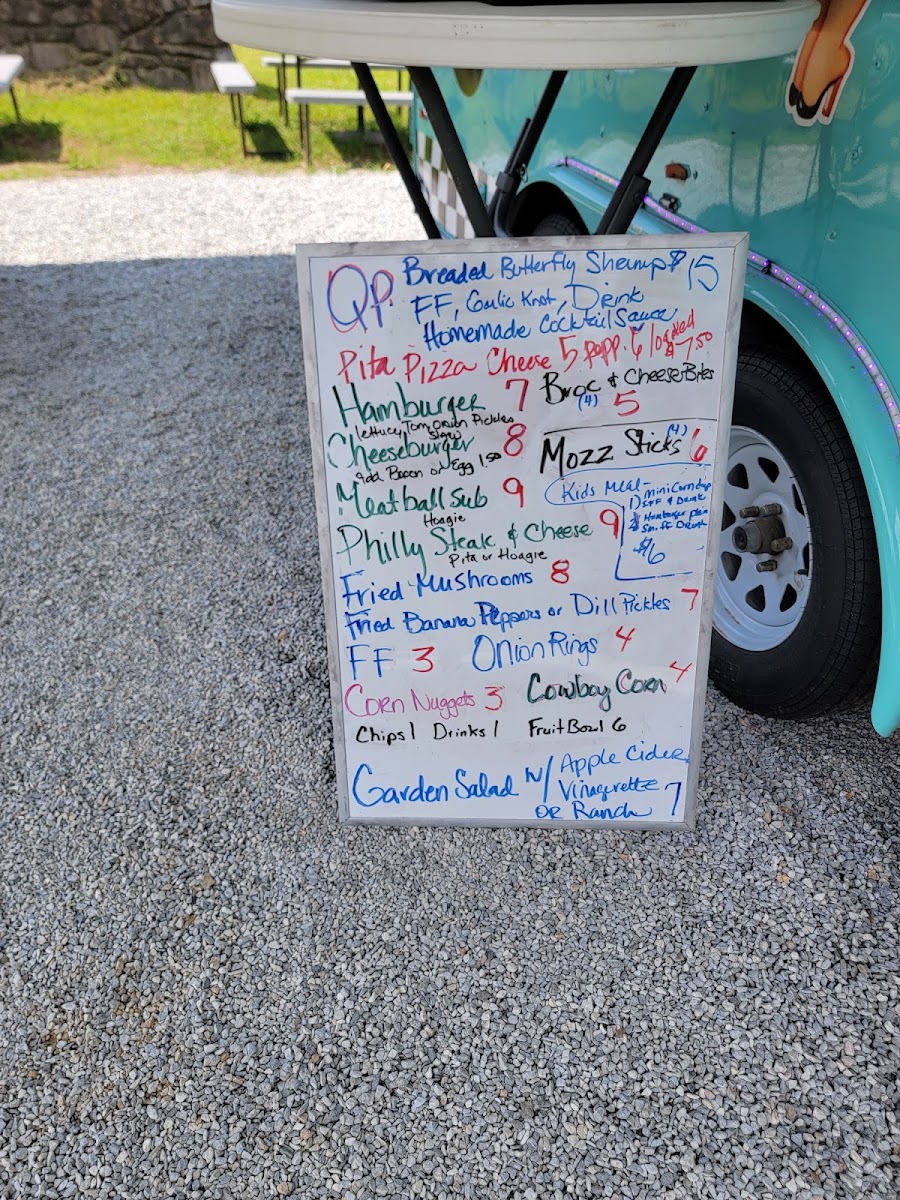 QP Breaded Butterfly Shrimp $15
FF, Garlic Knot, Drink
Homemade Cocktail Sauce
Pita Pizza Cheese 5 pepp. 6 loaded $7.50
Hamburger 7
Lettuce, Tom, Onion Pickles
Slaw
Broc & Cheese Bites
(4) 5
Cheeseburger 8
add Bacon or Egg 1.50
Mozz Sticks (4) 6
Meatball Sub 9
Hoagie
Kids Meal-
1) mini Corndog
S FF & Drink
Hamburger plain
Sm. FF Drink
$6
Philly Steak & Cheese 9
Pita or Hoagie
Fried Mushrooms 8
Fried Banana Peppers or Dill Pickles 7
FF 3 Onion Rings 4
Corn Nuggets 3 Cowboy Corn 4
Chips 1 Drinks 1 Fruit Bowl 6
Garden Salad w/ Apple Cider
Vinagerette
or Ranch 7